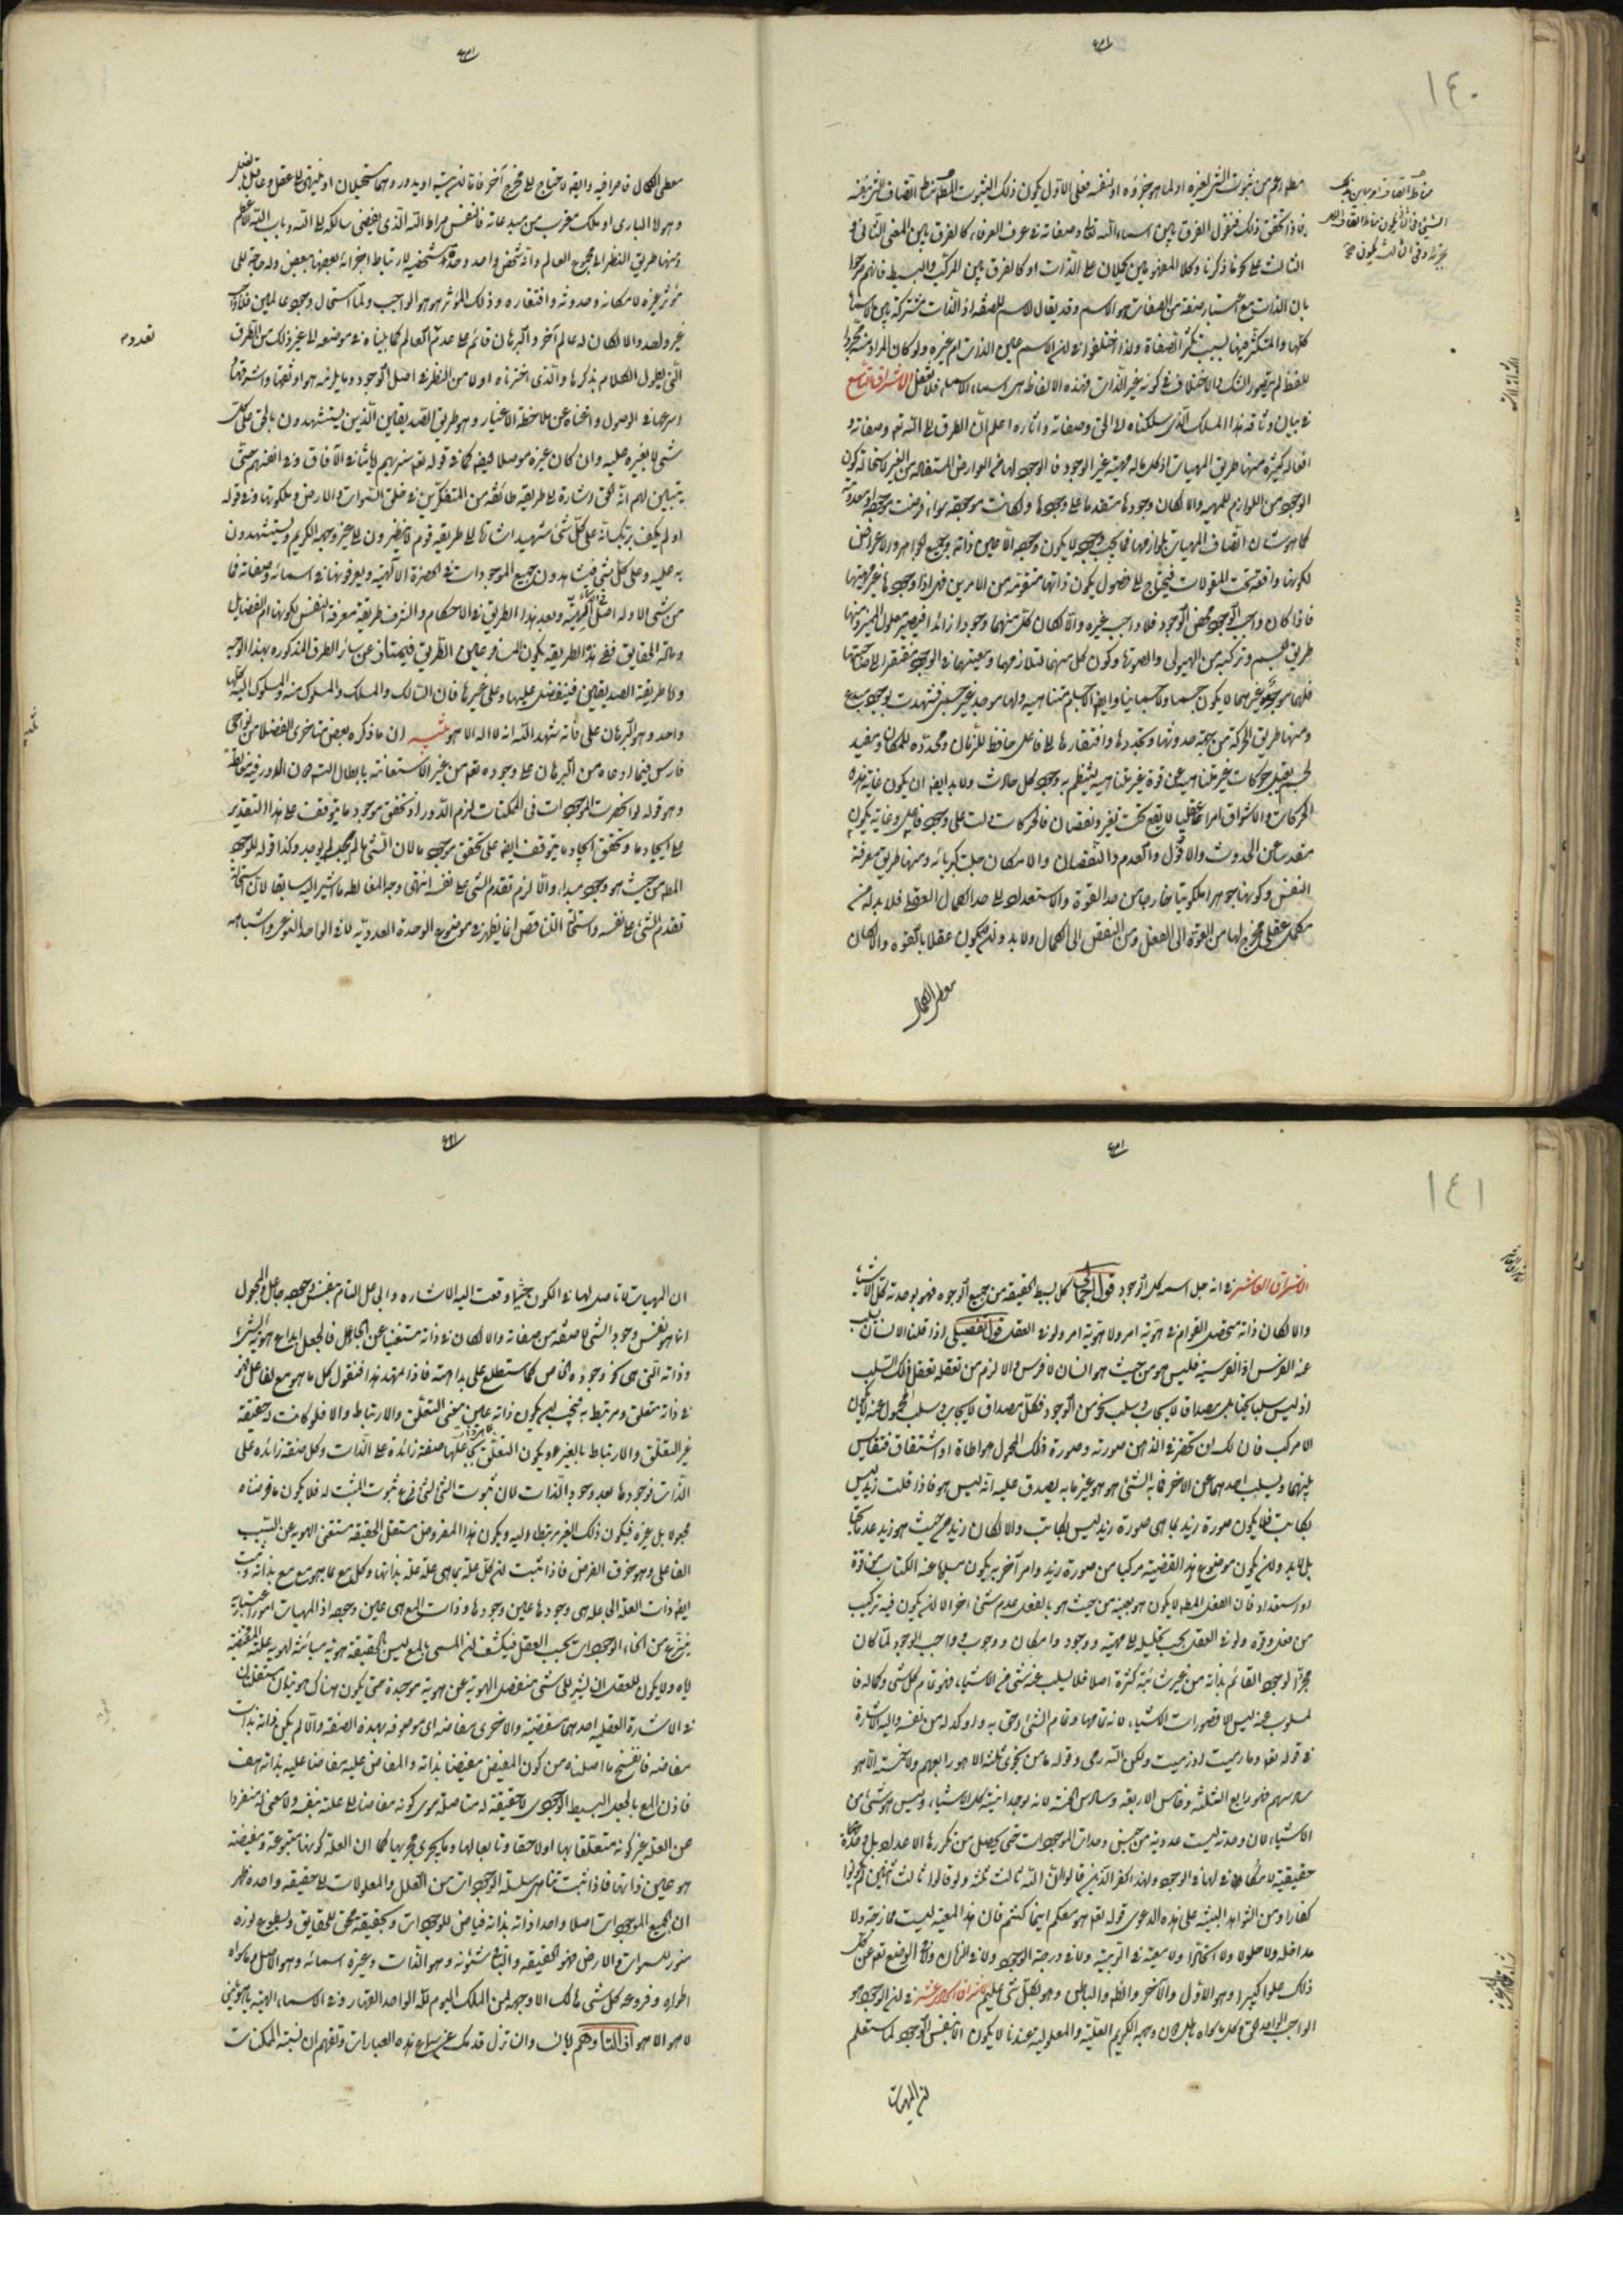 ١٤٠
فاذا تحقق ذلك فنقول الفرق بين اسماء الله تعالى وصفاته في عرف العرفاء كالفرق بين المعنى الثاني و
الثالث على نحو ما ذكرنا وكلا المعنيين يحملان على الذات او كالفرق بين المركب والبسيط فانهم صرحوا
بان الذات مع اعتبار صفة من الصفات هو الاسم وقد يقال الاسم للصفة اذ الذات مشتركة بين الاسماء
كلها والتكثر فيها بسبب تكثر الصفات ولذا اختلفوا في ان الاسم عين الذات ام غيره ولو كان المراد منه مجرد
اللفظ لم يتصور الشك والاختلاف في كونه غير الذات فهذه الالفاظ هي اسماء الاسماء فلا تغفل الاشراق التاسع
في بيان وثاقة هذا المسلك الذي سلكناه الى الحق وصفاته واثاره اعلم ان الطرق الى الله تعالى وصفاته و
افعاله كثيرة منها طريق المهيات اذ كل ما له مهية غير الوجود فالوجود لها من العوارض المستفادة من الغير لاستحالة كون
الوجود من اللوازم للمهية والا لكان وجودها متقدما على وجودها ولكانت موجودة سواء فرضت موجودة او معدومة
كما هو شان اتصاف المهيات بلوازمها فما يجب وجوده لا يكون وجوده الا عين ذاته وجميع الجواهر والاعراض
لكونها واقعة تحت المقولات فيحتاج الى فصول يكون ذاتها متقومة من الامرين فهي اذا وجودها غير مهيتها
فاذا كان واجب الوجود محض الوجود فلا واجب غيره والا لكان كل منهما وجودا زائدا فيصير معلول الغير ومنها
طريق الجسم وتركبه من الهيولى والصورة وكون كل منهما متلازمها ومعيتها في الوجود مفتقرا الى صاحبتها
فلهما موجد غيرهما لا يكون جسما ولا جسمانيا وايضا الاجسام متناهية ولها موجد غير جسم فشهدت بوجود مبدع
ومنها طريق الحركة من جهة حدوثها وتجددها وافتقارها الى فاعل حافظ للزمان ومحدد للمكان ومفيد
لجسم يقبل حركات غير متناهية عن قوة غير متناهية ينتظم به وجود كل حادث ولا بد ايضا ان يكون غاية هذه
الحركات والاشواق امرا عقليا لا يقع تحت تغير ونقصان فالحركات دلت على وجود فاعل وغاية يكون
مقدسا عن الحدوث والافول والعدم والنقصان والامكان جلت كبريائه ومنها طريق معرفة
النفس وكونها جوهرا ملكوتيا خارجا من حد القوة والاستعداد الى حد الكمال العقلي فلا بد له من
مكمل عقلي مخرج لها من القوة الى الفعل ومن النقص الى الكمال ولا بد وان لا يكون عقلا بالقوة والا لكان
معطي الكمال
معطي الكمال قاصرا فيه وايضا لاحتاج الى مخرج آخر فاما ان يتسلسل او يدور وهما مستحيلان او ينتهي الى عقل وعاقل بالفعل
وهو اما الباري او ملك مقرب من مبدعاته فالنفس صراط الله الذي يفضي سالكه الى الله وباب الله الاعظم
ومنها طريق النظر الى مجموع العالم وانه شخص واحد وحدة شخصية لارتباط اجزائه بعضها ببعض وله حاجة الى
مؤثر غيره لامكانه وحدوثه وافتقاره وذلك المؤثر هو هو الواجب ولما استحال وجود عالمين فلا واجب
غير واحد والا لكان له عالم آخر والبرهان قائم على عدم العالم كما بيناه في موضعه الى غير ذلك من الطرق
تعدد
التي يطول الكلام بذكرها والذي اخترناه اولا من النظر في اصل الوجود وما يلزمه هو اوثقها واشرفها و
اسرعها في الوصول واغناه عن ملاحظة الاغيار وهو طريق الصديقين الذين يستشهدون بالحق على كل
شئ لا بغيره عليه وان كان غيره موصلا ايضا كما في قوله تعالى سنريهم اياتنا في الآفاق وفي انفسهم حتى
يتبين لهم انه الحق اشارة الى طريقة طائفة من المتفكرين في خلق السموات والارض وملكوتها وفي قوله
او لم يكف بربك انه على كل شئ شهيد اشارة الى طريقة قوم لا ينظرون الى غير وجهه الكريم ويستشهدون
به عليه وعلى كل شئ فيشاهدون جميع الموجودات في الحضرة الالهية ويعرفونها في اسمائه وصفاته فما
من شئ الا وله اصل في الالهية وبعد هذا الطريق في الاحكام والشرف طريقة معرفة النفس لكونها ام الفضايل
ومادة الحقايق ففي هذه الطريقة يكون المسافر عين الطريق فيمتاز عن سائر الطرق المذكورة بهذا الوجه
واما طريقة الصديقين فيتفضل عليها وعلى غيرها فان السالك والمسلك والمسلوك منه والمسلوك اليه كلها
واحد وهو البرهان على ذاته شهد الله انه لا اله الا هو تنبيه ان ما ذكره بعض متاخرى الفضلاء من نواحى
فارس فيما ادعاه من البرهان على وجوده تعالى من غير الاستعانة بابطال التسلسل والدور فيه مغالطة
وهو قوله لو انحصرت الموجودات في الممكنات لزم الدور اذ تحقق موجود ما يتوقف على هذا التقدير
على ايجاد ما وتحقق ايجاد ما يتوقف ايضا على تحقق موجود ما لان الشئ ما لم يوجد لم يوجد وكذا قوله للموجود
المطلق من حيث هو موجود مبداء والا لزم تقدم الشئ على نفسه انتهى وجه المغالطة ما اشير اليه سابقا لان استحالة
تقدم الشئ على نفسه واستحالة التناقض انما يظهر في موضوع الوحدة العددية لا في الواحد النوعي واشباهه
١٤١
الاشراق العاشر في انه جل اسمه كل الوجود قول اجمالي كل بسيط الحقيقة من جميع الوجوه فهو بوحدته كل الاشياء
والا لكان ذاته متحصل القوام من هوية امر ولا هوية امر ولو في العقل قول تفصيلي اذا قلنا الانسان يسلب
عنه الفرس او الفرسية فليس هو من حيث هو انسان لا فرس والا لزم من تعقله تعقل ذلك السلب
اذ ليس سلبا بحتا بل سلب نحو من الوجود فكل مصداق لايجاب سلب محمول عنه لا يكون
الا مركبا فان لك ان تحضر في الذهن صورته وصورة ذلك المحمول مواطاة او اشتقاقا فتقايس
بينهما وتسلب احدهما عن الاخر فما به الشئ هو هو غير ما به يصدق عليه انه ليس هو فاذا قلت زيد ليس
بكاتب فلا يكون صورة زيد بما هي صورة زيد ليس بكاتب والا لكان زيد من حيث هو زيد عدما بحتا
بل لا بد وان يكون موضوع هذه القضية مركبا من صورة زيد وامر آخر به يكون مسلوبا عنه الكتابة من قوة
او استعداد فان الفعل المطلق لا يكون هو بعينه من حيث هو بالفعل عدم شئ آخر الا ان يكون فيه تركيب
من فعل وقوة ولو في العقل بحسب تحليله الى مهية ووجود وامكان ووجوب وواجب الوجود لما كان
مجرد الوجود القائم بذاته من غير شائبة كثرة اصلا فلا يسلب عنه شئ من الاشياء فهو تمام كل شئ وكماله فا
لمسلوب عنه ليس الا قصورات الاشياء لانه تمامها وتمام الشئ احق به واوكد له من نفسه واليه الاشارة
في قوله تعالى وما رميت اذ رميت ولكن الله رمى وقوله ما من نجوى ثلثة الا هو رابعهم ولا خمسة الا هو
سادسهم فهو رابع الثلثة وخامس الاربعة وسادس الخمسة لانه بوحدانيته كل الاشياء وليس هو شئ من
الاشياء لان وحدته ليست عددية من جنس وحدات الموجودات حتى يحصل من تكررها الاعداد بل وحدة
حقيقية لا مكافئ لها في الوجود ولهذا كفر الذين قالوا ان الله ثالث ثلثة ولو قالوا ثالث اثنين لم يكونوا
كفارا ومن الشواهد البينة على هذه الدعوى قوله تعالى هو معكم اينما كنتم فان هذه المعية ليست ممازجة ولا
مداخلة ولا حلولا ولا اتحادا ولا معية في المرتبة ولا في درجة الوجود ولا في الزمان ولا في الوضع تعالى عن كل
ذلك علوا كبيرا وهو الاول والآخر والظاهر والباطن وهو بكل شئ عليم الاشراق الحادي عشر في ان الوجود هو
الواجب الواحد الحق وكل ما سواه باطل دون وجهه الكريم العلية والمعلولية عندنا لا يكون الا بنفس الوجود لما ستعلم
ان المهيات
ان المهيات لا تاصل لها في الكون حيثما وقعت اليه الاشارة والجاعل التام بنفس وجوده جاعل والمجعول
انما هو نفس وجود الشئ لا صفة من صفاته والا لكان في ذاته مستغنيا عن الجاعل فالجعل ابداع هوية الشئ
وذاته التي هي نحو وجوده الخاص كما ستطلع على بداهته فاذا تمهد هذا فنقول كل ما هو مع لفاعل فهو
في ذاته متعلق ومرتبط به فيجب ان يكون ذاته عين معنى التعلق والارتباط والا فلو كانت له حقيقة
غير التعلق والارتباط بالغير ويكون التعلق بجاعلها صفة زائدة على الذات وكل صفة زائدة على
الذات فوجودها بعد وجود الذات لان ثبوت الشئ للشئ فرع ثبوت المثبت له فلا يكون ما فرضناه
مجعولا بل غيره فيكون ذلك الغير مرتبطا اليه ويكون هذا المفروض مستقل الحقيقة مستغنى الهوية عن السبب
الفاعلي وهو خرق الفرض فاذا ثبت ان كل علة بما هي علة علة بذاتها وكل مع بما هو مع مع بذاته وثبت
ايضا ذات العلة الجاعلة هي وجودها عين وجودها وذات المع هي عين وجوده اذ المهيات امور اعتبارية
ينتزع من انحاء الوجودات بحسب العقل فينكشف ان المسمى بالمع ليس لحقيقته هوية مبائنة لهوية علته المفيضة
اياه ولا يكون للعقل ان يشير الى شئ منفصل الهوية عن هوية موجده حتى يكون هناك هويتان مستقلتان
في الاشارة العقلية احدهما مفيضة والاخرى مفاضة اي موصوفة بهذه الصفة والا لم يكن ذاته بذاته
مفاضة فانفسخ ما اصلناه من كون المفيض مفيضا بذاته والمفاض عليه مفاضا عليه بذاته هف
فاذن المع بالجعل البسيط الوجودي لا حقيقة له متاصلة سوى كونه مضافا الى علته بنفسه ولا معنى له منفردا
عن العلة غير كونه متعلقا بها او لاحقا وتابعا لها وما يجري مجراها كما ان العلة كونها متبوعة ومفيضة
هو عين ذاتها فاذا ثبت تناهي سلسلة الوجودات من العلل والمعلولات الى حقيقة واحدة ظهر
ان لجميع الموجودات اصلا واحدا ذاته بذاته فياض للموجودات وبحقيقته محقق للحقايق وبسطوع نوره
منور للسموات والارض فهو الحقيقة والباقي شئونه وهو الذات وغيره اسمائه وهو الاصل وما سواه
اطواره وفروعه كل شئ هالك الا وجهه لمن الملك اليوم لله الواحد القهار وفي الاسماء الالهية يا هو يا من
لا هو الا هو ازالة وهم اياك وان تزل قدمك عن سماع هذه العبارات وتفهم ان نسبة الممكنات